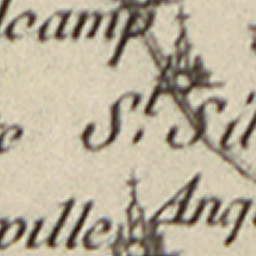 lcamp
e S.t Sil
ville Ang